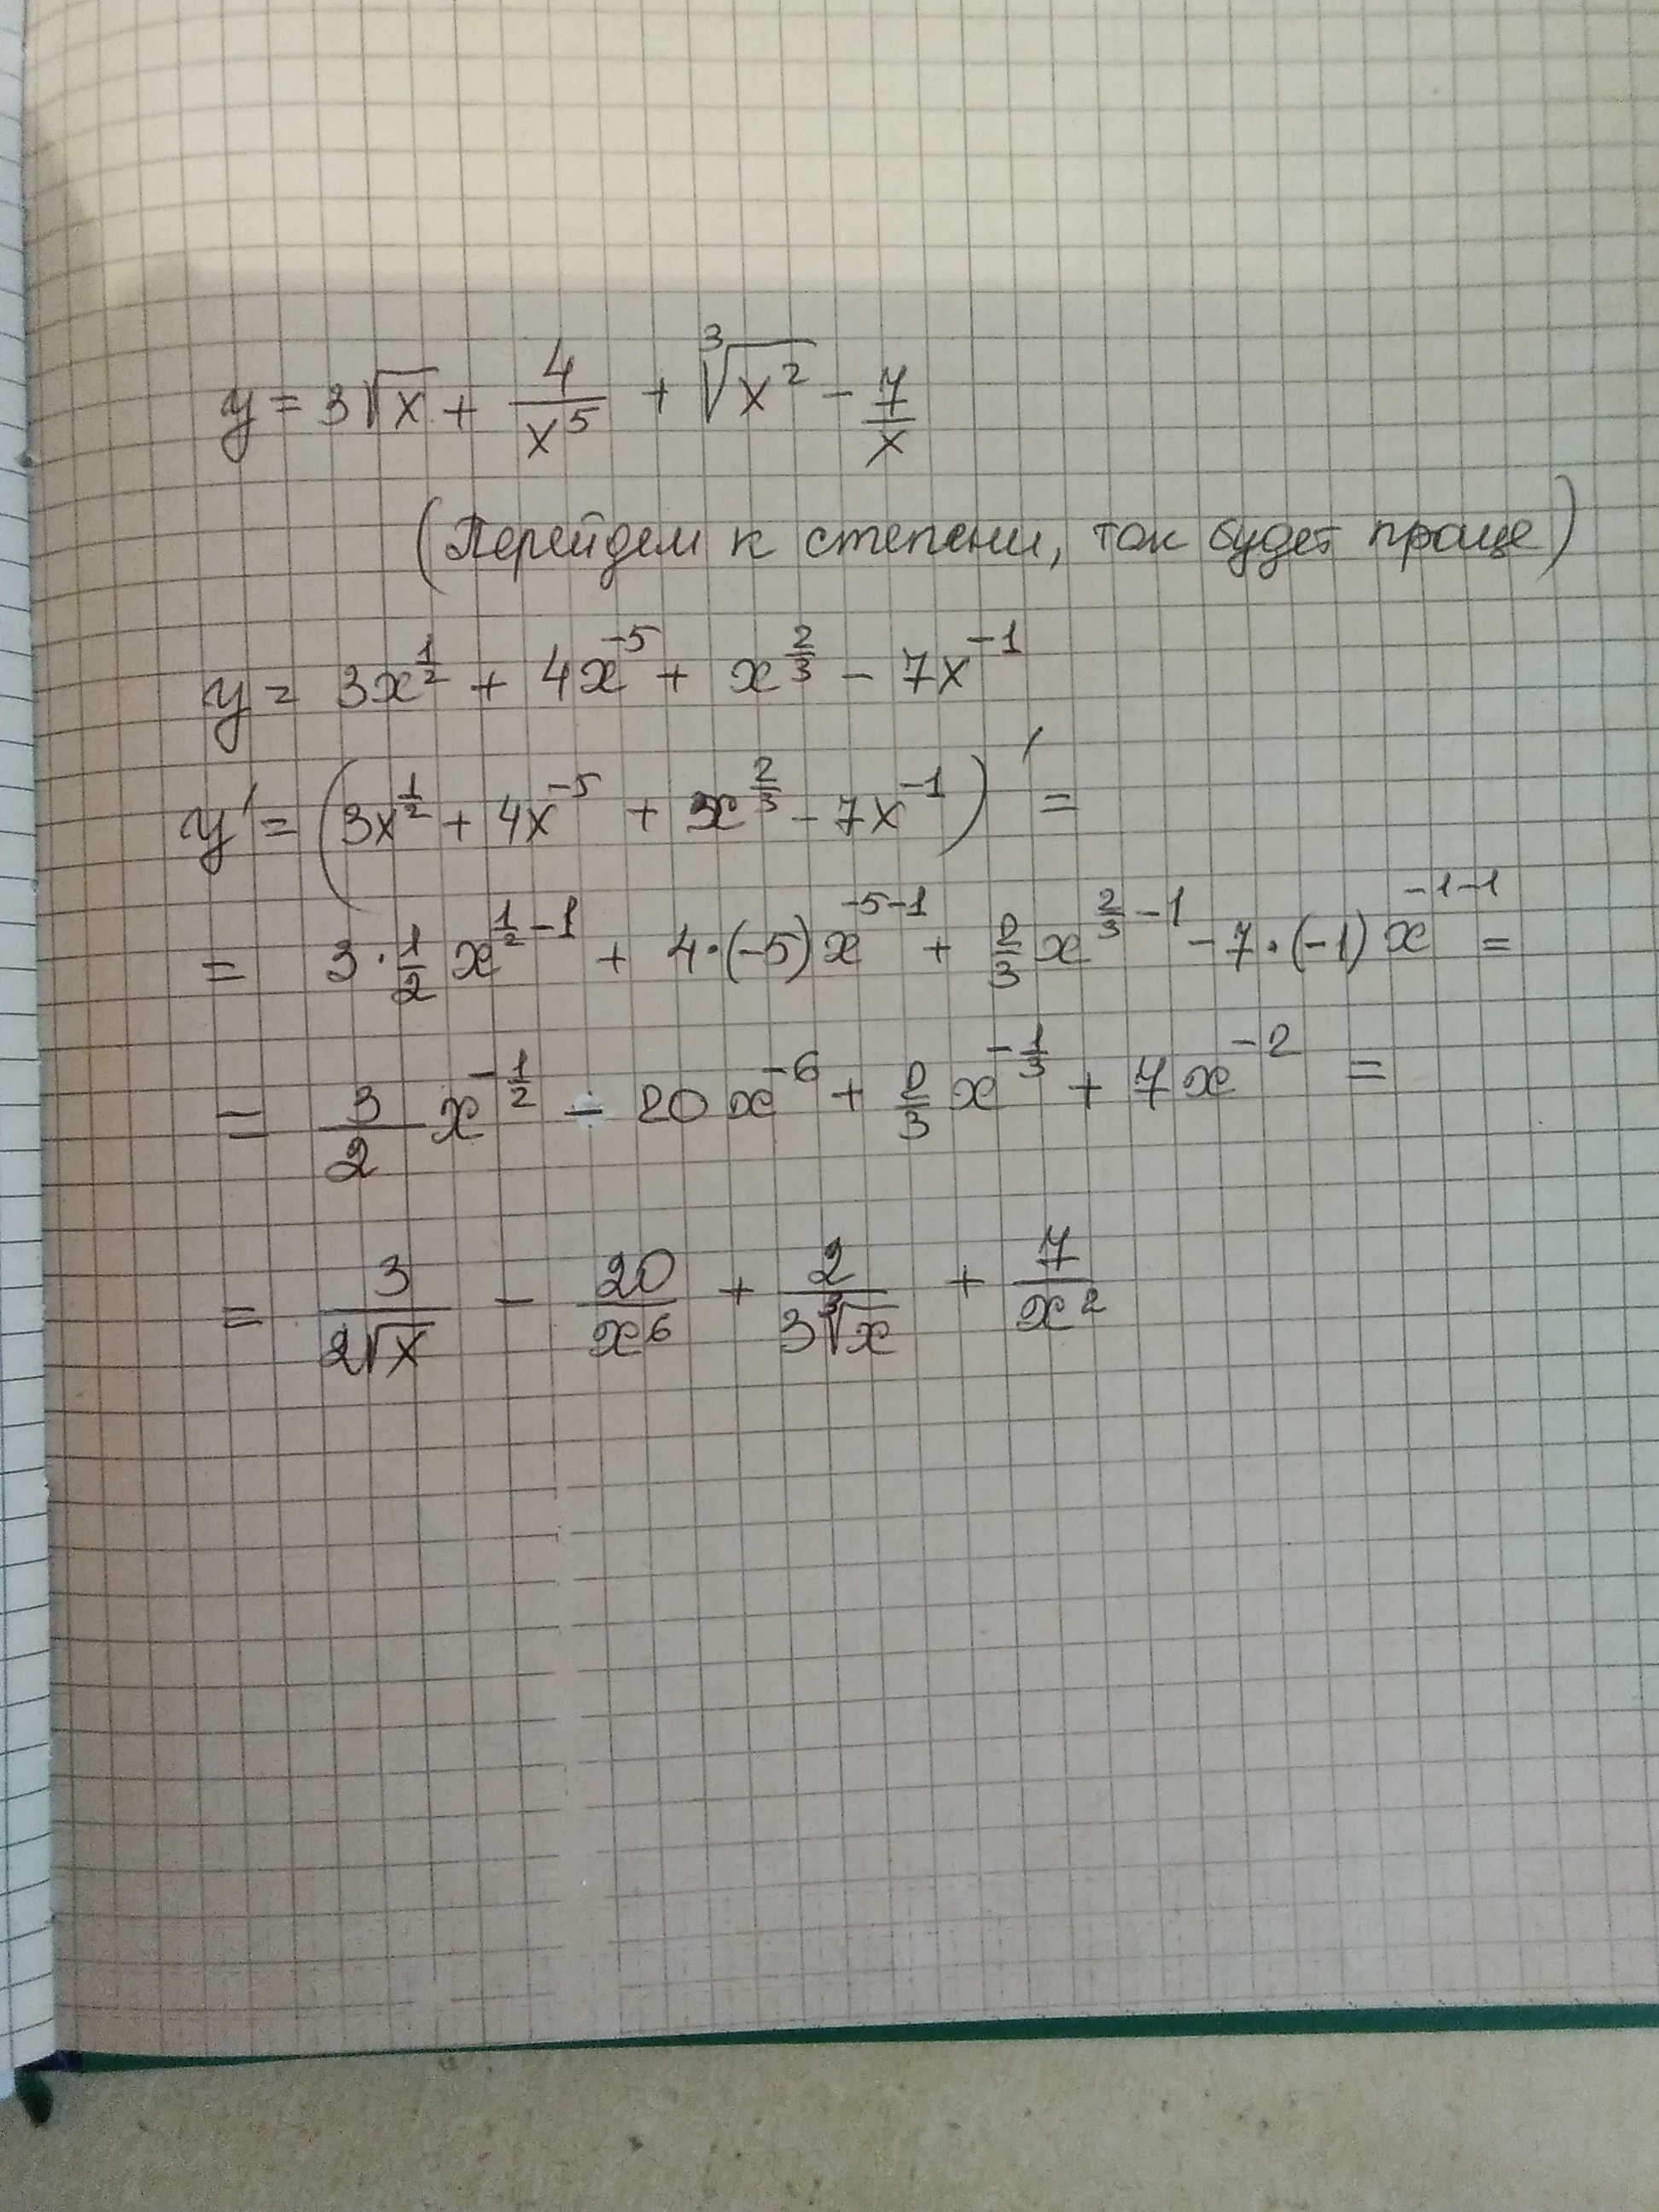 y = 3√x + 4/x⁵ + ∛x² − 7/x
(Перейдем к степени, так будет проще)
y = 3x^(1/2) + 4x^(−5) + x^(2/3) − 7x^(−1)
y' = (3x^(1/2) + 4x^(−5) + x^(2/3) − 7x^(−1))' =
= 3·1/2 x^(1/2−1) + 4·(−5)x^(−5−1) + 2/3 x^(2/3−1) − 7·(−1)x^(−1−1) =
= 3/2 x^(−1/2) − 20x^(−6) + 2/3 x^(−1/3) + 7x^(−2) =
= 3/(2√x) − 20/x⁶ + 2/(3∛x) + 7/x²